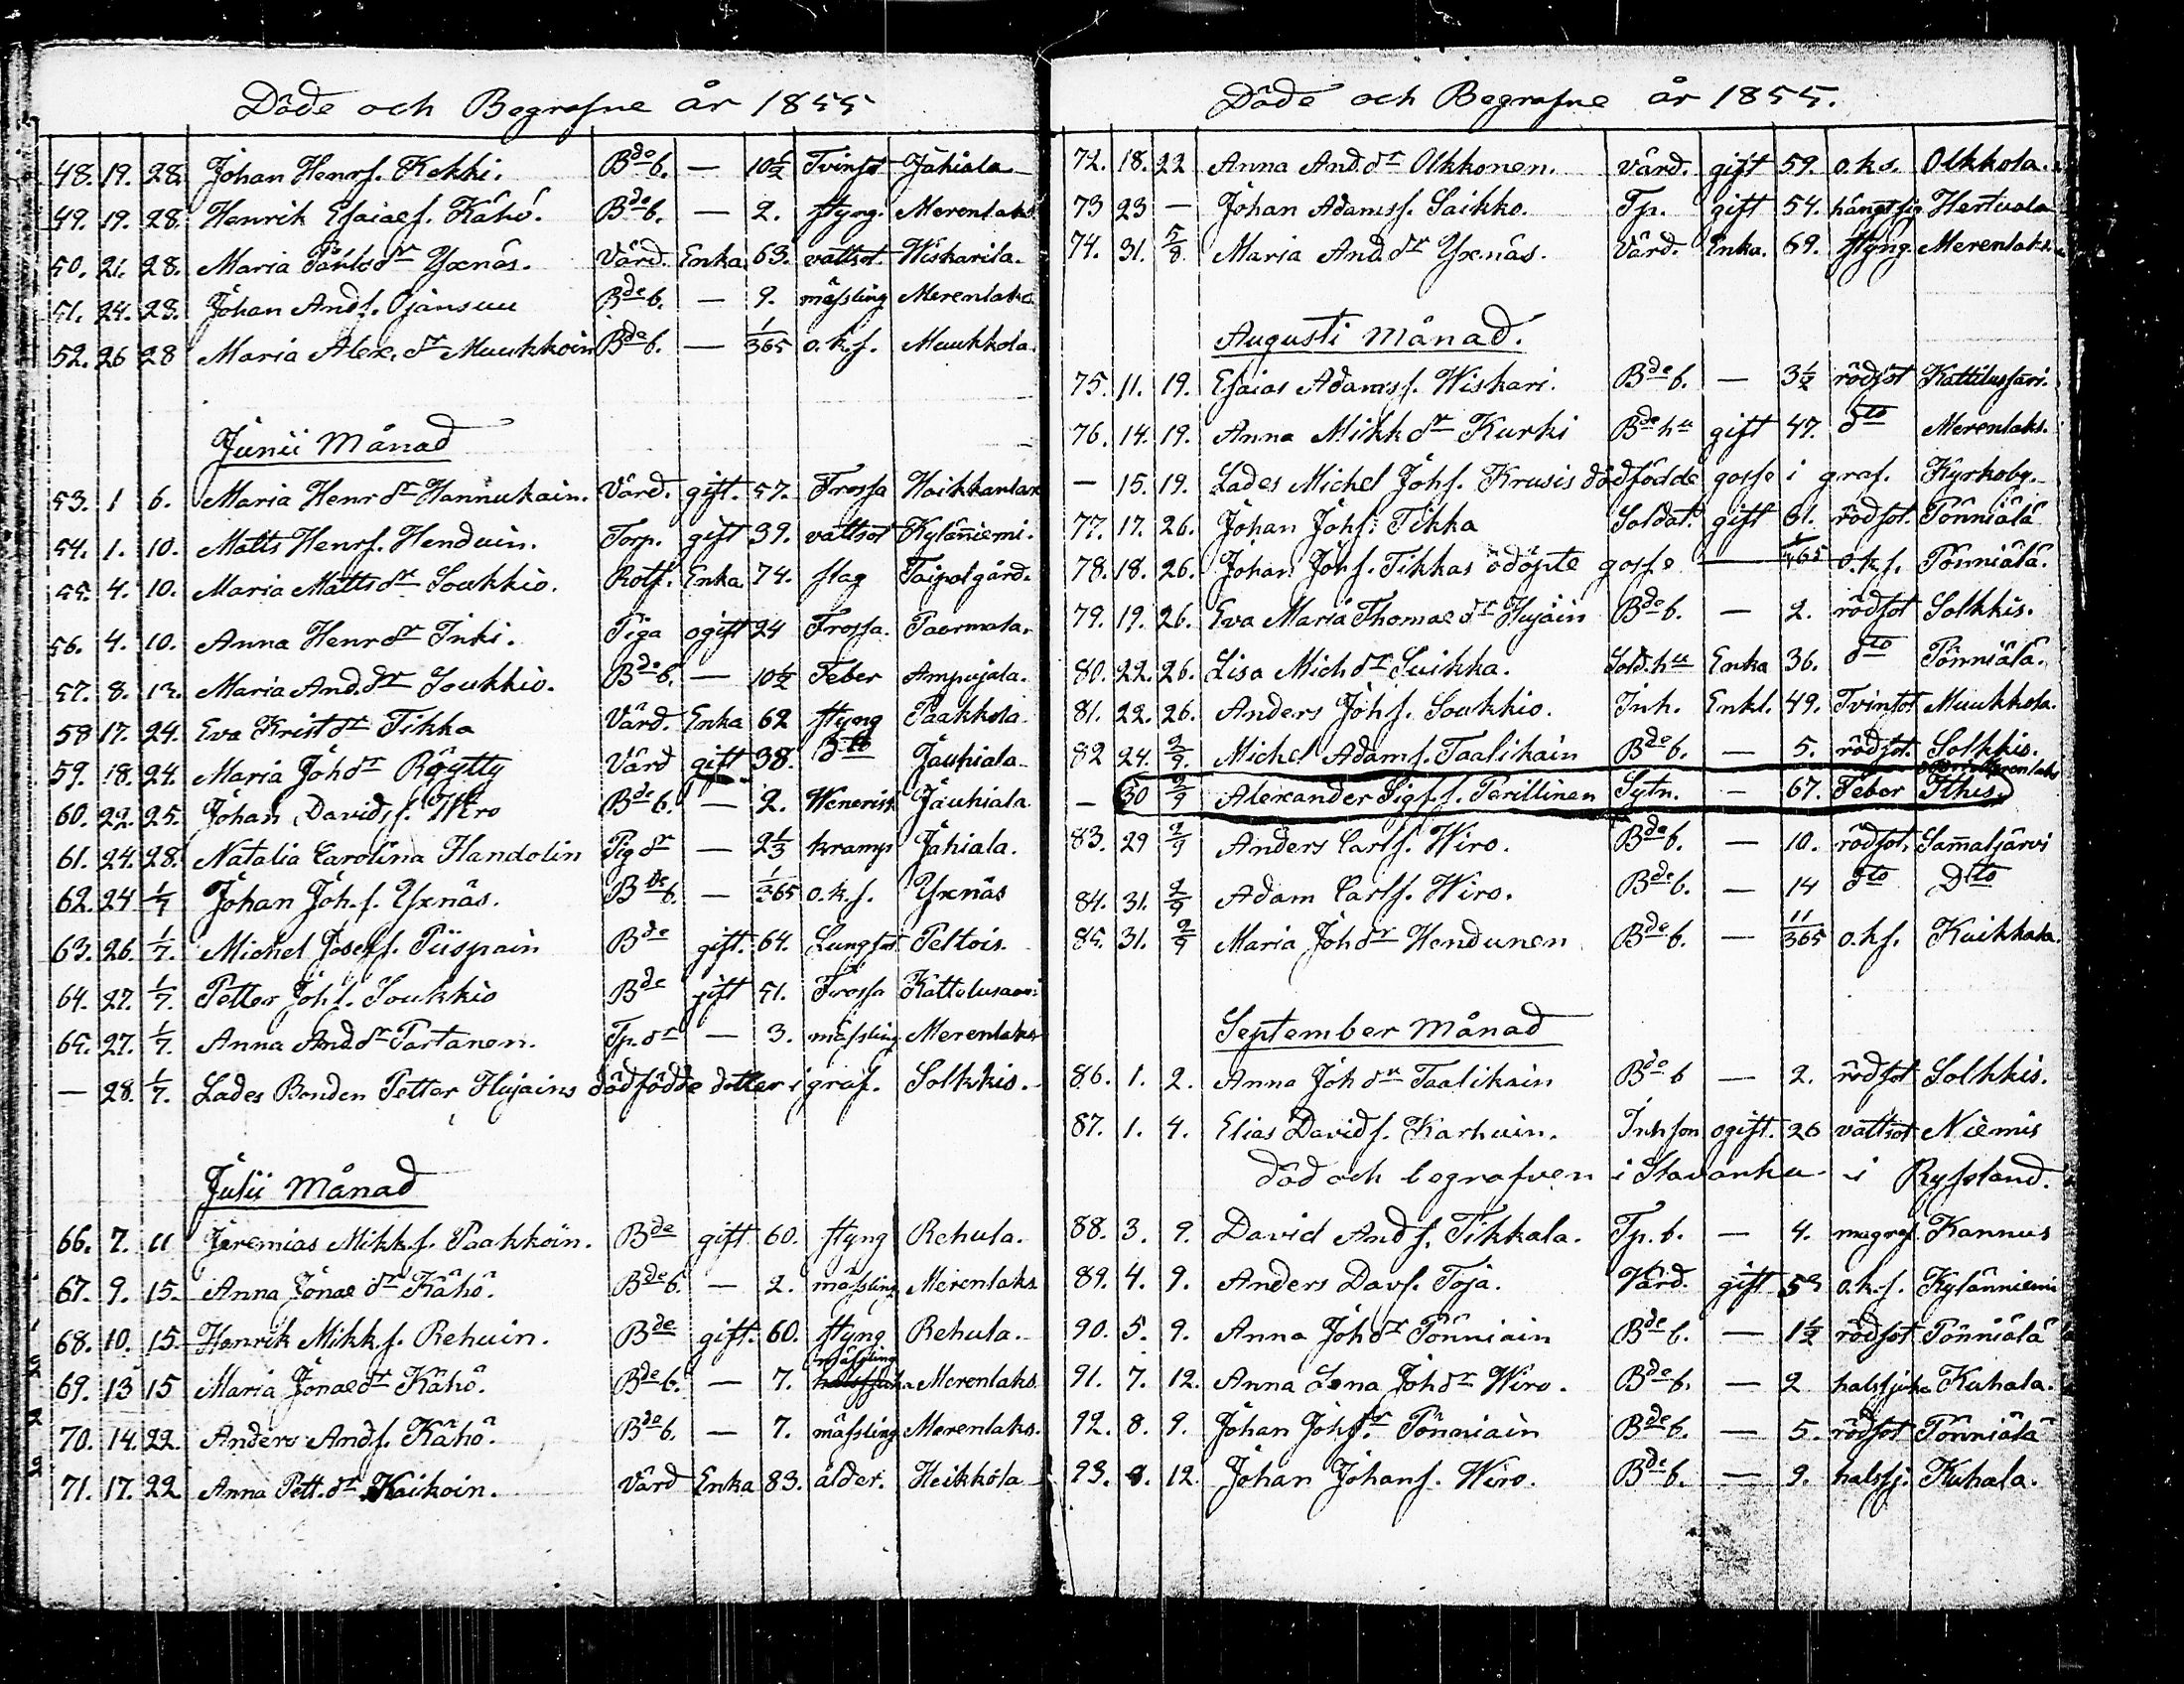 Döde och Begrafne år 1855
48. 19. 28. Johan Henrs. Kekki. Bde b. — 10½ Tvinsot Jähiala
49. 19. 28. Henrik Esaiaes. Kähö. Bde b. — 2. styng. Merenlaks.
50. 21. 28. Maria Påhlsdr Yxnäs. Värd. Enka 63. vattsot Wiskarila.
51. 24. 28. Johan Ands. Ojansuu Bde b. — 9. mässling Merenlaks
52. 26 28 Maria Alex. dr Muukkoin Bde b. — 1/365 o.k.s. Muukkola.
Junii Månad
53. 1 6. Maria Henr dr Hannukain. Värd. gift. 57. Frossa Haikkanlax
54. 1. 10. Matts Henrs. Henduin. Torp. gift 39. vattsot Kylänniemi.
55. 4. 10. Maria Mattsdr Soukkio. Rotf. Enka 74. slag Taipalgård.
56. 4. 10. Anna Henr dr Inki. Piga ogift 24 Frossa. Paermala.
57. 8. 13. Maria And. dr Soukkio. Bde b. — 10½ Feber Ampujala.
58 17. 24. Eva Krist dr Tikka Värd. Enka 62 styng Paakkola.
59. 18. 24. Maria Joh dr Röytty Värd gift 38. dto Jauhiala
60. 22. 25. Johan Davids s. Wiro Bde b. — 2. Wenerisk Jauhiala.
61. 24. 28. Natalia Carolina Handolin Pig dr — 2⅓ kramp Jähiala.
62. 24 1/7 Johan Joh. s. Yxnäs. Bde b. — 1/365 o.k.s. Yxnäs
63. 26. 1/7. Michel Josefs. Piispain Bde gift. 64. Lungsot Peltois.
64. 27. 1/7. Petter Joh s. Soukkio Bde gift 51. Frossa Kattelusaari
65. 27. 1/7. Anna And. dr Partanen. Tp. dr — 3. mässling Merenlaks
— 28. 1/7. Lades Bonden Petter Hujains dödfödde dotter i graf. Solkkis.
Julii Månad
66. 7. 11 Jeremias Mikk. s. Paakkoin. Bde gift 60. styng Rehula.
67. 9. 15. Anna Jonae dr Kähö. Bde b. — 2. mässling Merenlaks.
68. 10. 15. Henrik Mikk s. Rehuin. Bde gift. 60. styng Rehula.
69. 13 15 Maria Jonae dr Kähö. Bde b. — 7. mässling Merenlaks.
70. 14. 22. Anders Ands. Kähö. Bde b. — 7. mässling Merenlaks.
71. 17. 22 Anna Pett. dr Kaikoin. Värd Enka 83. ålder. Heikkola
Döde och Begrafne år 1855.
72. 18. 22 Anna And. dr Olkkonen. värd. gift 59. o.ks. Olkkola.
73 23 — Johan Adamss. Saikko. Tp. gift 54. hängt sig Hertuala
74. 31. 5/8 Maria And. dr Yxnäs. Värd. Enka. 69. styng Merenlaks.
Augusti Månad.
75. 11. 19. Esaias Adamss. Wiskari. Bde b. — 3½ rödsot Kattilussari.
76. 14. 19. Anna Mikk dr Kurki Bde hu gift 47. dto Merenlaks.
— 15. 19. Lades Michel Johs. Krusis dödfödde gosse i graf. Kyrkoby.
77. 17. 26. Johan Johs. Tikka Soldat. gift 31. rödsot. Pönniälä
78. 18. 26. Johan Joh s. Tikkas odöpte gosse — 1/365 o.k.s. Pönniälä.
79. 19. 26. Eva Maria Thomae dr Hujain Bde b. — 2. rödsot Solkkis.
80. 22. 26. Lisa Mich dr Suikka. Sold. hu Enka 36. dto Pönniälä.
81. 22. 26. Anders Joh s. Soukkio. Inh. Enkl. 49. Tvinsot Muukkola.
82 24. 2/9. Michel Adams s. Taalikain Bde b. — 5. rödsot. Solkkis.
— 30 2/9 Alexander Sigf. s. Parillinen Sytn. — 67. Feber Ithis.
83. 29 2/9 Anders Carls. Wiro. Bde b. — 10. rödsot. Sam̅aljärvi
84. 31. 2/9 Adam Carls. Wiro. Bde b. — 14 dto Dto
85. 31. 2/9 Maria Joh dr Hendunen Bde b. — 11/365 o.ks. Kuikkala.
September Månad
86. 1. 2. Anna Joh dr Taalikain Bde b — 2. rödsot Solkkis.
87. 1. 4. Elias Davids. Karhuin. Inhson ogift. 26 vattsot Niemis
död och begrafven i Slavänka i Ryssland.
88. 3. 9. David And s. Tikkala. Tp. b. — 4. magref. Kannus
89. 4. 9. Anders Davs. Toja. Värd. gift 53 o.k.s. Kylänniemi
90. 5. 9. Anna Joh dr Pönniain Bde b. — 1½ rödsot Pönniälä
91. 7. 12. Anna Lena Joh dr Wiro. Bde b. — 2 halssjuka Kuhala.
92. 8. 9. Johan Johs. Pönniain Bde b. — 5. rödsot Pönniälä
93. 8. 12. Johan Johans. Wiro. Bde b. — 9. halssj. Kuhala.